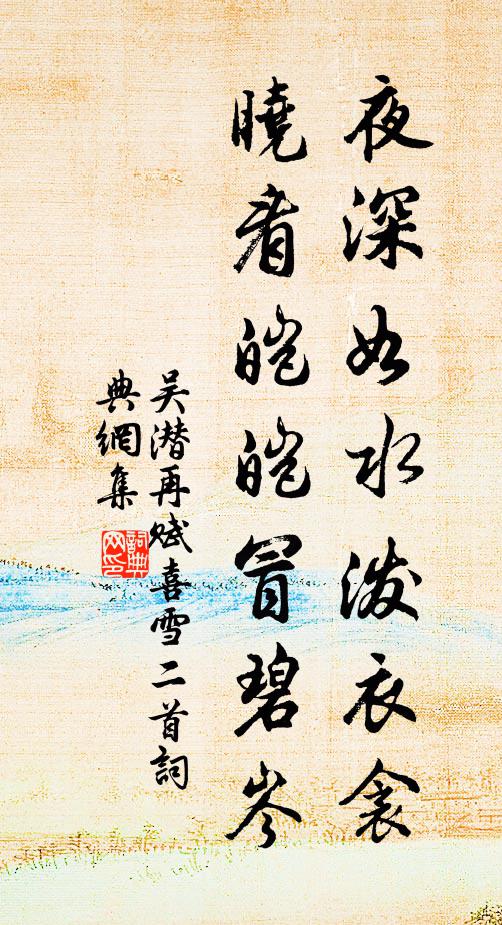 夜深如水泼衣衾
曉看皑皑冒碧岑
吴潜再赋喜雪二首詞
典網集
詞典网印